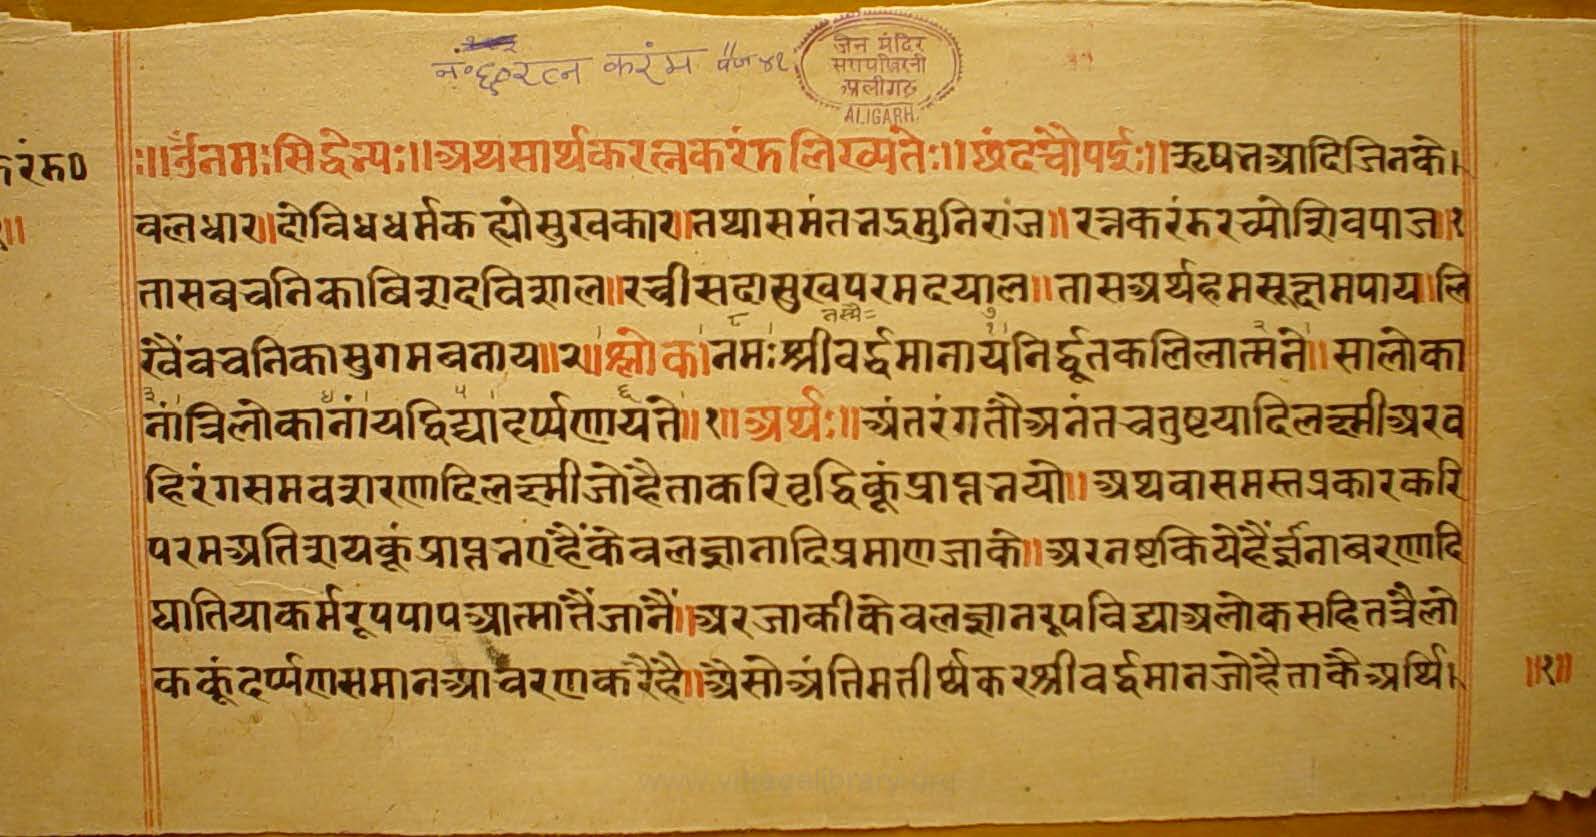 नं॰ ६० रत्न करंम पैज ४१
जैन मंदिर
अलीगढ़
ALIGARH.
करंम०
॥ॐनमःसिद्धेभ्यः॥अथसार्थकरत्नकरंमलिख्यंतेः॥छंदचौपईः॥ऋषभआदिजिनके।
वलधार॥दोविधधर्मकह्योसुखकार॥तथासमंतभद्रमुनिराज॥रत्नकरंमरच्योशिवपाज॥१
तासबचनिकाबिशदविशाल॥रचीसदासुखपरमदयाल॥तासअर्थहमसूक्षमपाय॥लि
खैंवचनिकासुगमबनाय॥२॥श्लोक॥नमःश्रीवर्द्धमानायनिर्द्धूतकलिलात्मने॥सालोका
नांत्रिलोकानांयद्विद्यादर्प्पणायते॥१॥अर्थः॥अंतरंगतौअनंतचतुष्टयादिलक्ष्मीअरव
हिरंगसमवशरणादिलक्ष्मीजोहैताकरिवृद्धिकूंप्राप्तभयो॥अथवासमस्तप्रकारकरि
परमअतिशयकूंप्राप्तभयाहैंकेवलज्ञानादिप्रमाणजाके॥अरनष्टकियेहैंज्ञनाबरणादि
घातियाकर्मरूपपापआत्मांतैंजांनैं॥अरजाकीकेवलज्ञानरूपविद्याअलोकसहितत्रैलो
ककूंदर्प्पणसमानआवरणकरैहै॥अैसोअंतिमतीर्थकरश्रीवर्द्धमानजोहैताकैअर्थि।
॥१॥
www.vitragelibrary.org